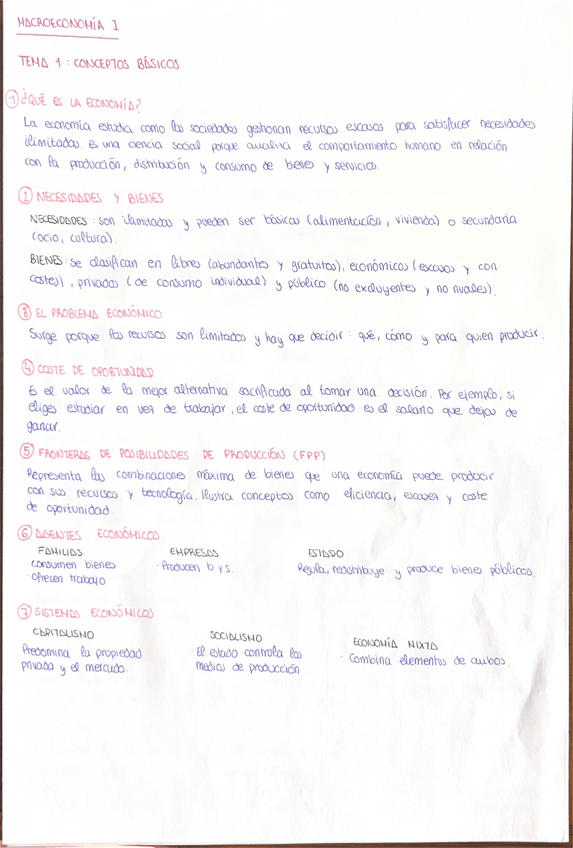 MACROECONOMÍA I
TEMA 1: CONCEPTOS BÁSICOS
① ¿QUÉ ES LA ECONOMÍA?
La economía estudia como las sociedades gestionan recursos escasos para satisfacer necesidades
ilimitadas. Es una ciencia social porque analiza el comportamiento humano en relación
con la producción, distribución y consumo de bienes y servicios.
② NECESIDADES Y BIENES
NECESIDADES: son ilimitadas y pueden ser básicas (alimentación, vivienda) o secundaria
(ocio, cultura).
BIENES: Se clasifican en libres (abundantes y gratuitos), económicos (escasos y con
costes), privados (de consumo individual) y público (no excluyentes y no rivales).
③ EL PROBLEMA ECONÓMICO
Surge porque los recursos son limitados y hay que decidir: qué, cómo y para quien producir.
④ COSTE DE OPORTUNIDAD
Es el valor de la mejor alternativa sacrificada al tomar una decisión. Por ejemplo, si
eliges estudiar en vez de trabajar, el coste de oportunidad es el salario que dejas de
ganar.
⑤ FRONTERAS DE POSIBILIDADES DE PRODUCCIÓN (FPP)
Representa las combinaciones máxima de bienes que una economía puede producir
con sus recursos y tecnología. Ilustra conceptos como eficiencia, escasez y coste
de oportunidad.
⑥ AGENTES ECONÓMICOS
FAMILIAS EMPRESAS ESTADO
consumen bienes · Producen b y s. Regula, redistribuye y produce bienes públicos.
· ofrecen trabajo
⑦ SISTEMAS ECONÓMICOS
CAPITALISMO SOCIALISMO ECONOMÍA MIXTA
Predomina la propiedad · El estado controla los · Combina elementos de ambos.
privada y el mercado. medios de producción